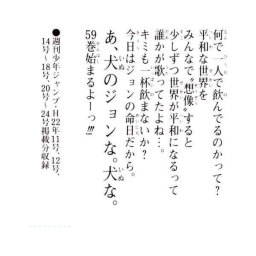 何で一人で飲んでるのかって？
平和な世界を
みんなで〝想像〟すると
少しずつ世界が平和になるって
誰かが歌ってたよね…。
キミも一杯飲まないか？
今日はジョンの命日だから。
あ、犬のジョンな。犬な。
59巻始まるよーっ!!!
●週刊少年ジャンプ・H22年11号、12号、
14号～18号、20号～24号掲載分収録